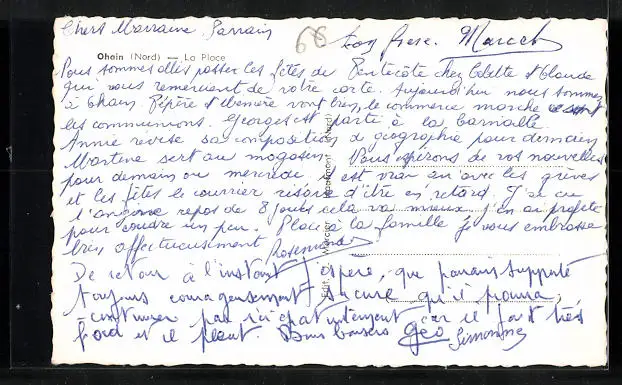 Chers Marraine Parrain
68
ton frère. Marcel
Ohain (Nord) — La Place
Nous sommes allés passer les fêtes de Pentecôte chez Colette et Claude
qui vous remercient de votre carte. Aujourd'hui nous sommes
à Pépère et Mémère vont bien, le commerce marche
les communions. Georges est parti à la
Annie révise sa composition de géographie pour demain
Martine sert au magasin. Nous espérons de vos nouvelles
pour demain ou mercredi il est vrai qu'avec les grèves
et les fêtes le courrier risque d'être en retard. J'ai eu
repos de 8 jours cela va mieux j'en ai profité
pour coudre un peu. Place à la famille je vous embrasse
bien affectueusement
De retour à l'instant j'espère, que parrain supporte
toujours courageusement sa cure qu'il pourra,
continuer car il fait très
froid et il pleut. Bons baisers Géo Simonne